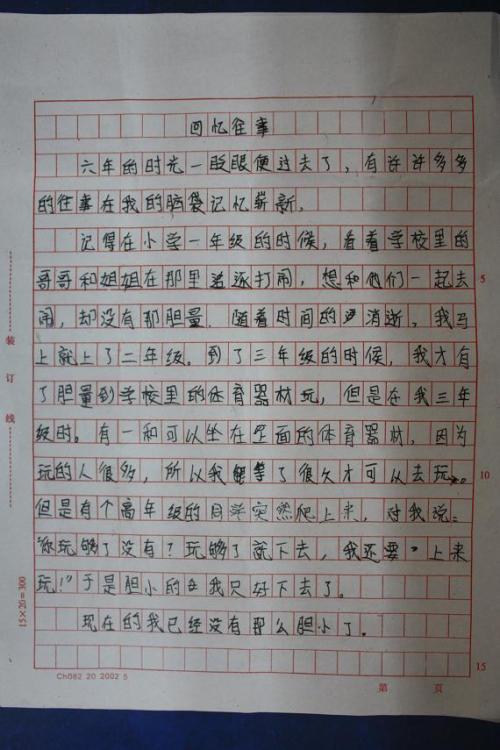 回忆往事
六年的时光一眨眼便过去了，有许许多多
的往事在我的脑袋记忆崭新，
记得在小学一年级的时候，看着学校里的
哥哥和姐姐在那里追逐打闹，想和他们一起去
闹，却没有那胆量，随着时间的消逝，我马
上就上了二年级。到了三年级的时候，我才有
了胆量到学校里的体育器材玩，但是在我三年
级时。有一和可以坐在里面的体育器材，因为
玩的人很多，所以我等了很久才可以去玩。
但是有个高年级的同学突然爬上来，对我说：
“你玩够了没有？玩够了就下去，我还要，上来
玩！”于是胆小的我只好下去了。
现在的我已经没有那么胆小了。
装订线
5
10
15
15×20=300
Ch082 20 2002 5
第 页